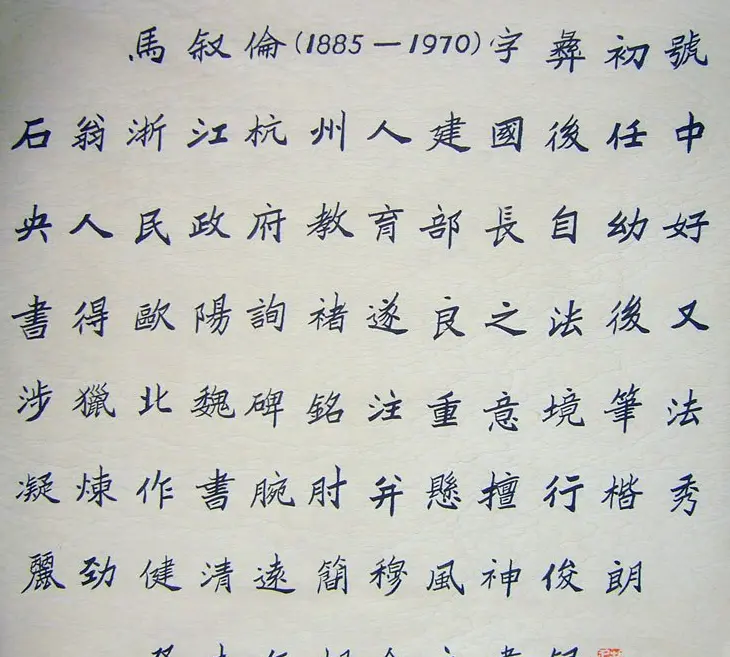 馬叙倫(1885—1970)字彝初號
石翁浙江杭州人建國後任中
央人民政府教育部長自幼好
書得歐陽詢褚遂良之法後又
涉獵北魏碑銘注重意境筆法
凝煉作書腕肘并懸擅行楷秀
麗勁健清遠簡穆風神俊朗